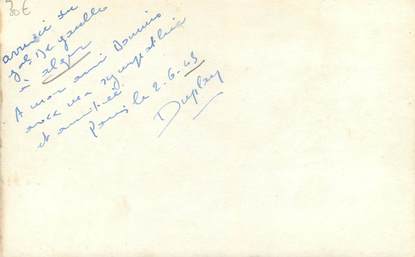 30€
arrivée du
gal De gaulle
à alger
A mon ami Dominis
avec ma sympathie
et amitié
Paris le 2.6.43
Duplay